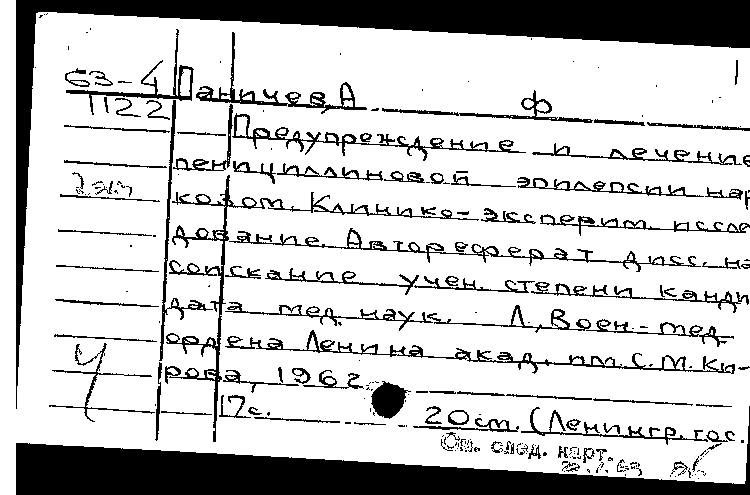 63-4 Паничев, А ф
1122
Предупреждение и лечение
пенициллиновой эпилепсии нар
2 экз
козом. Клинико-эксперим. иссле
дование. Автореферат дисс. на
соискание учен. степени канди
дата мед. наук. Л., Воен-мед.
ордена Ленина акад. им. С. М. Ки-
рова, 1962
17с. 20 см. (Ленингр. гос.
См. след. карт.